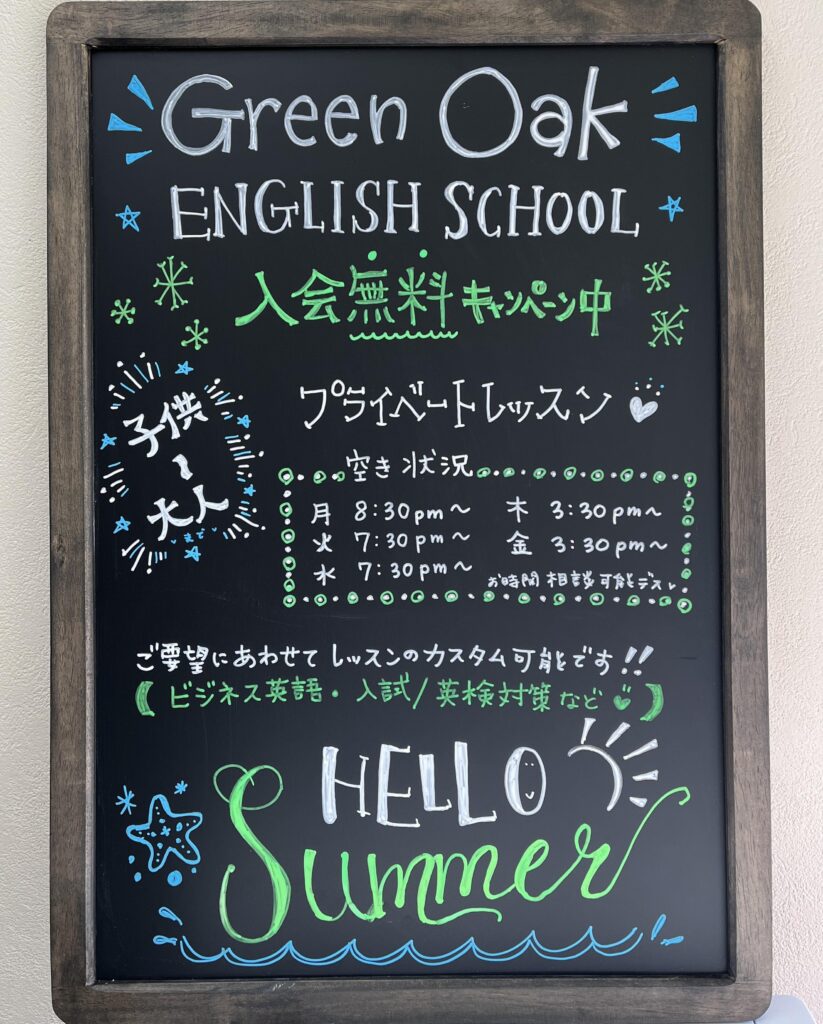 Green Oak
ENGLISH SCHOOL
入会無料キャンペーン中
子供
〜
大人
まで
プライベートレッスン
空き状況
月 8:30pm〜 木 3:30pm〜
火 7:30pm〜 金 3:30pm〜
水 7:30pm〜 お時間相談可能デス
ご要望にあわせてレッスンのカスタム可能です!!
(ビジネス英語・入試/英検対策など)
HELLO
Summer